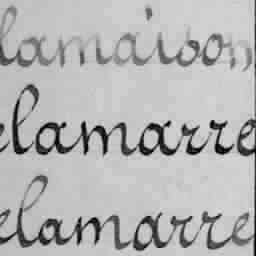 lamaison
elamarre
elamarre